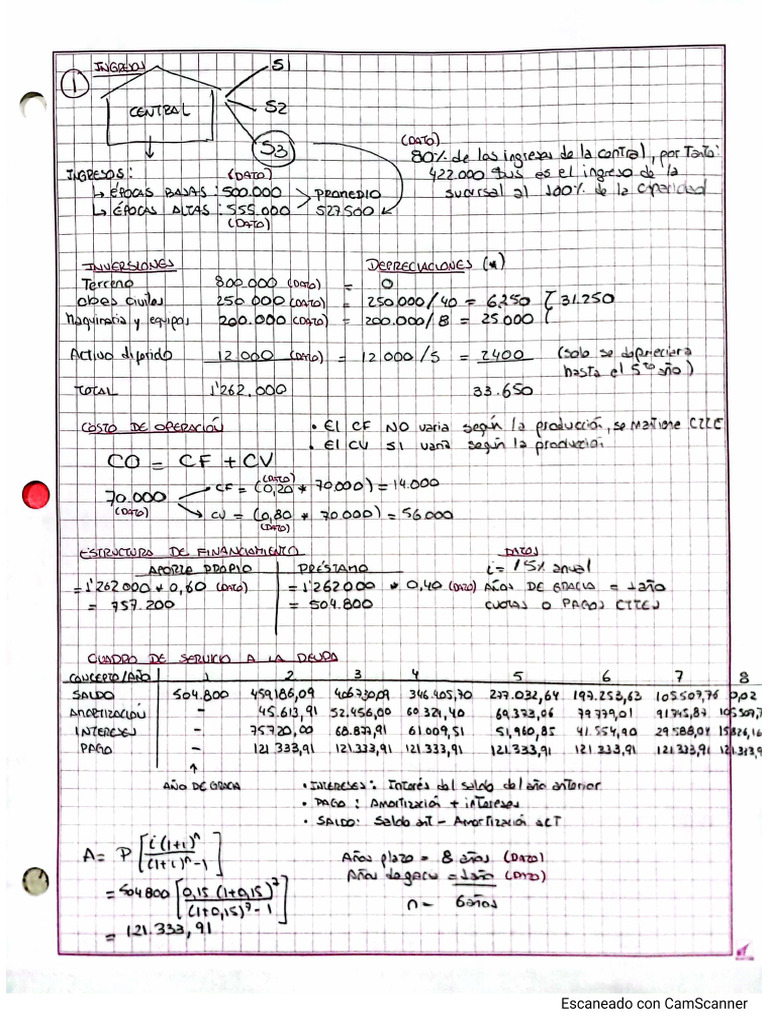 1 INGRESOS
CENTRAL
S1
S2
S3
INGRESOS: (DATO)
↳ ÉPOCAS BAJAS: 500.000 > PROMEDIO
↳ ÉPOCAS ALTAS: 555.000 527.500
(DATO)
(DATO)
80% de los ingresos de la central, por tanto:
422.000 $us es el ingreso de la
sucursal al 100% de la capacidad
INVERSIONES DEPRECIACIONES (*)
Terreno 800.000 (DATO) = 0
obras civiles 250 000 (DATO) = 250.000/40 = 6.250 31.250
Maquinaria y equipos 200.000 (DATO) = 200.000/8 = 25.000
Activo diferido 12.000 (DATO) = 12 000/5 = 2400 (solo se depreciara
hasta el 5to año)
TOTAL 1'262.000 33.650
COSTO DE OPERACIÓN • El CF NO varia según la producción, se mantiene CTTE
• El CV SI varia según la producción
CO = CF + CV
(DATO)
70.000 CF = (0,20 * 70.000) = 14.000
(DATO) CV = (0,80 * 70.000) = 56000
(DATO)
ESTRUCTURA DE FINANCIAMIENTO DATOS
APORTE PROPIO PRÉSTAMO i = 15% anual
= 1'262 000 * 0,60 (DATO) = 1'262000 * 0,40 (DATO) AÑOS DE GRACIA = 1 año
= 757.200 = 504.800 CUOTAS O PAGOS CTTES
CUADRO DE SERVICIO A LA DEUDA
CONCEPTO/AÑO 1 2 3 4 5 6 7 8
SALDO 504.800 459.186,09 406730,09 346.405,70 277.032,64 197.253,63 105.507,76 0,02
AMORTIZACIÓN - 45.613,91 52.456,00 60.321,40 69.373,06 79.779,01 91745,87 105.507,7
INTERESES - 75720,00 68.877,91 61.009,51 51,960,85 41.554,90 29 588,04 15826,16
PAGO - 121.333,91 121.333,91 121.333,91 121.333,91 121 333,91 121.333,91 121.333,9
↑
AÑO DE GRACIA
• INTERESES: Interés del saldo del año anterior
• PAGO: Amortización + intereses
• SALDO: Saldo ant - Amortización act
A = P [i(1+i)^n / (1+i)^n - 1]
= 504 800 [0,15 (1+0,15)^7 / (1+0,15)^7 - 1]
= 121.333,91
Años plazo = 8 años (DATO)
Años de gracia = 1 año (DATO)
n = 6 años
Escaneado con CamScanner